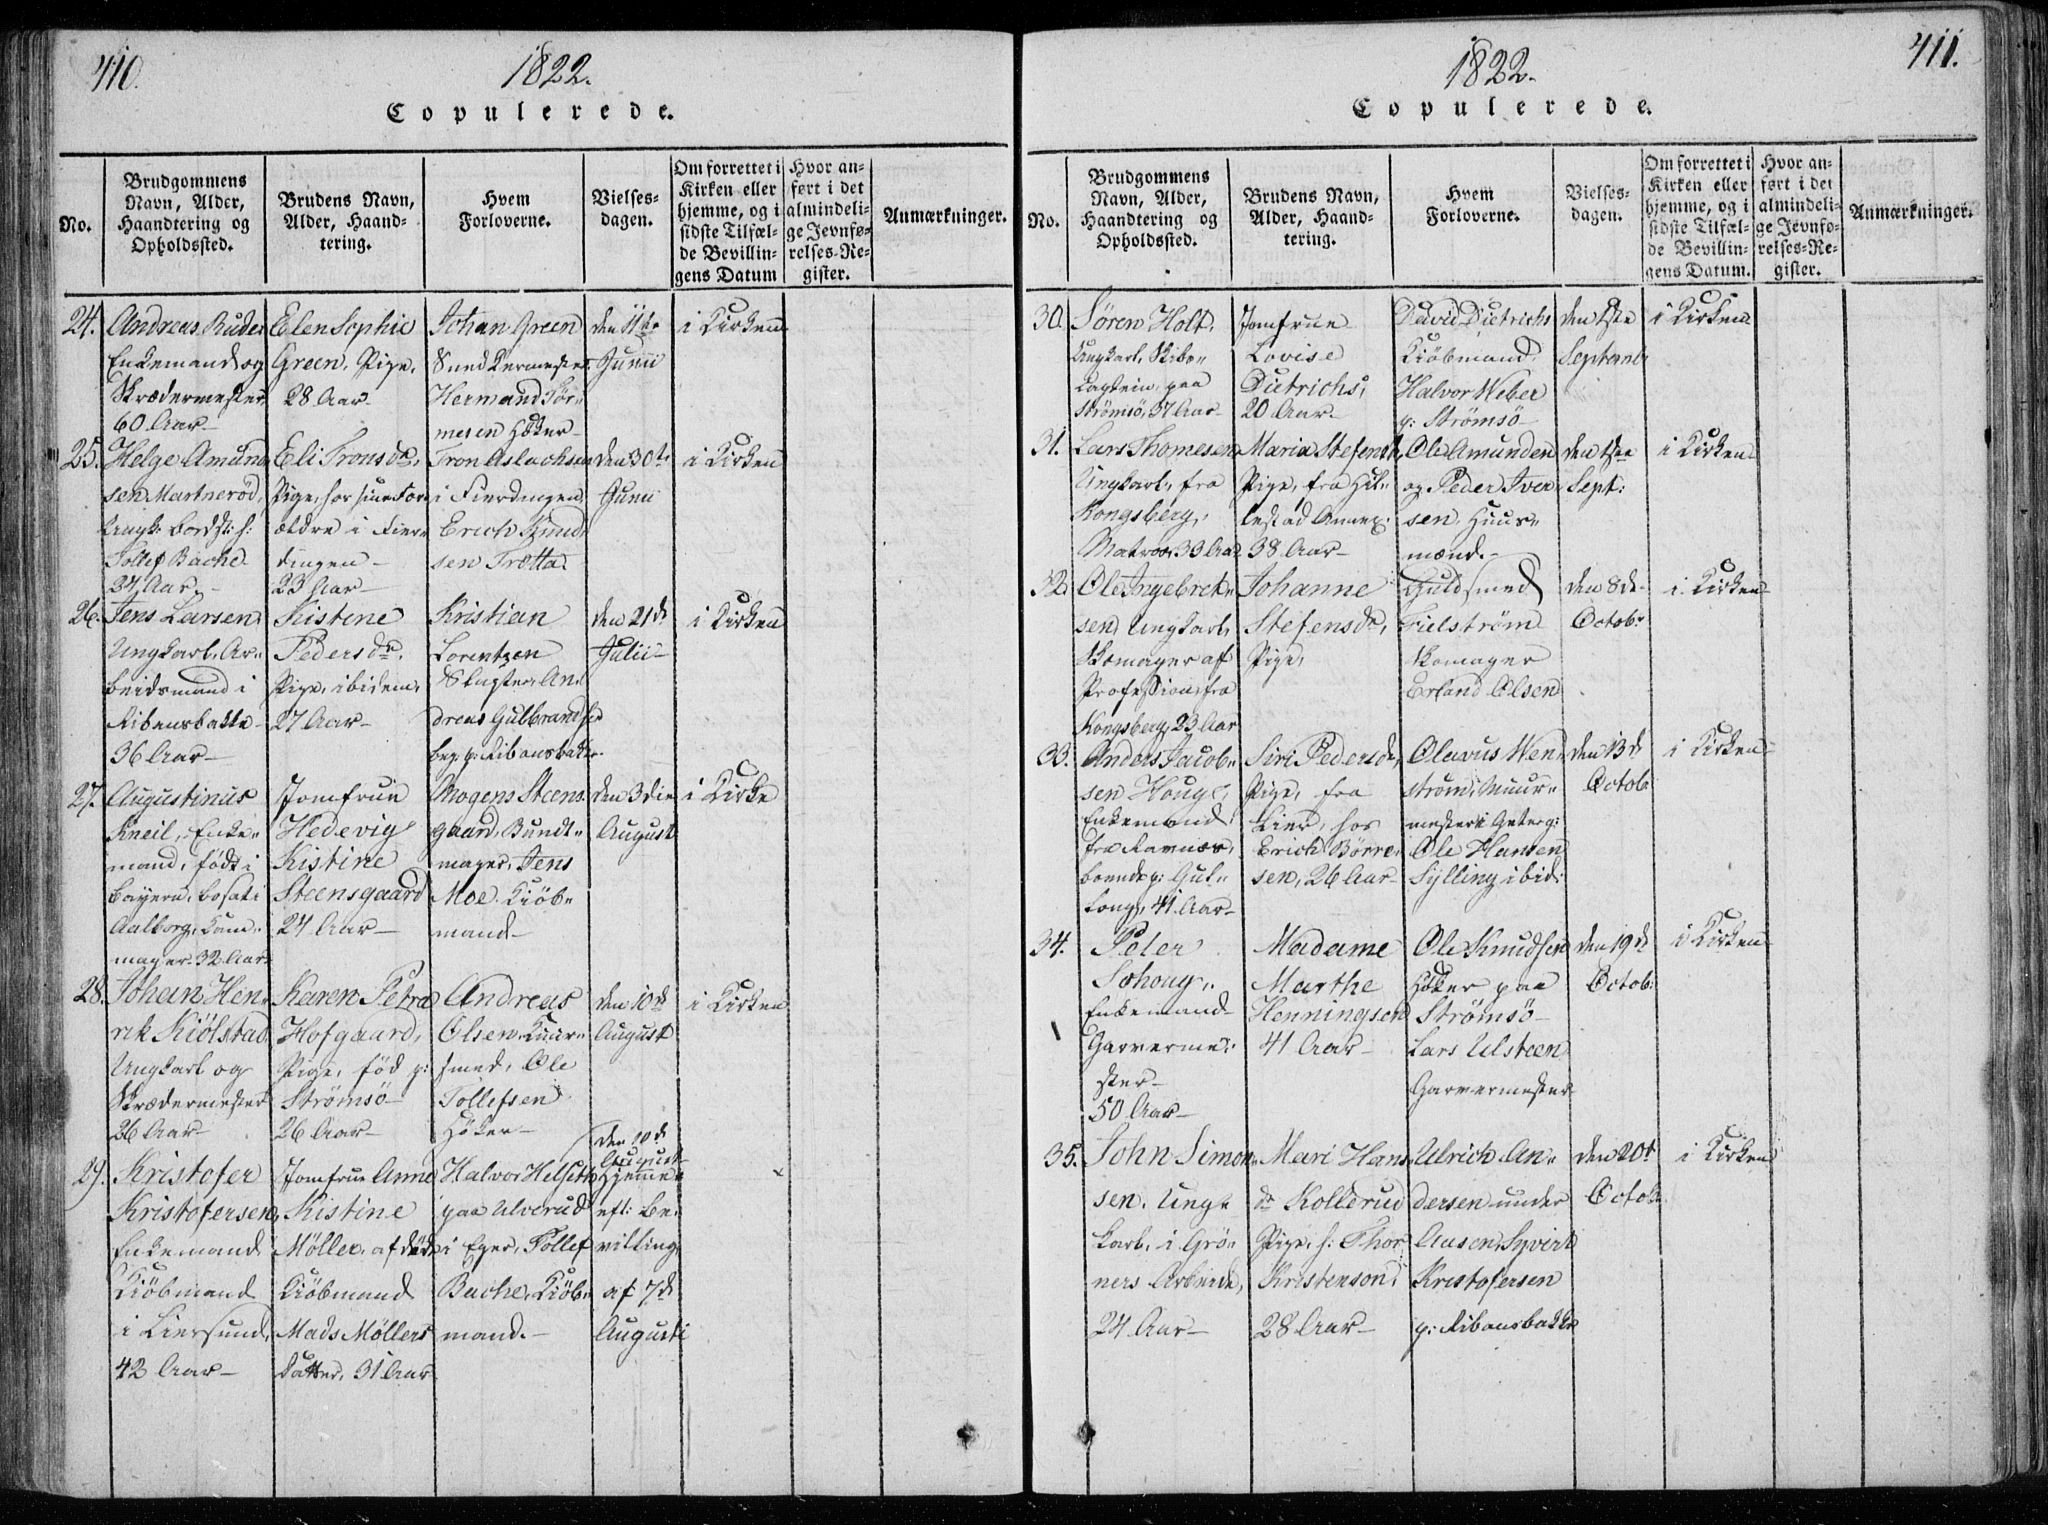 410.
1822.
Copulerede.
No.
Brudgommens Navn, Alder, Haandtering og Opholdssted.
Brudens Navn, Alder, Haandtering.
Hvem Forloverne.
Vielses-dagen.
Om forrettet i Kirken eller hjemme, og i sidste Tilfælde Bevillingens Datum
Hvor anført i det almindelige Jevnførelses-Register.
Anmærkninger.
24.
Andreas Ruder
Enkemand og
Skrædermester
60 Aar
Elen Sophie
Green, Pige,
28 Aar
Johan Green
Snedkermester
Hermand Sør-
mesen Høker
den 11te
Junii
i Kirken
25.
Helge Amund
sen Martnerød,
Ungk: bordst: h:
Tollef Bache
24 Aar
Eli Tronsdr.
Pige, hos sine For-
ældre i Fier-
dingen
23 Aar
Tron Aslachsen
i Fierdingen
Erich Knud
sen Trøtta
den 30te
Junii
i Kirken
26.
Jens Larsen
Ungkarl, Ar-
beidsmand i
Ribensbakke
36 Aar
Kistine
Pedersdr.
Pige, ibidem,
27 Aar
Kristian
Lorentzen
Slagter, An
dreas Gulbrandsen
beg: p: Ribansbakke
den 21de
Julii
i Kirken
27.
Augustinus
Kneil, Enke-
mand, født i
Bayern, bosat i
Aalborg, Kam-
mager. 32 Aar
Jomfrue
Hedevig
Kistine
Steensgaard
24 Aar
Mogens Steens
gaard, Bundt-
mager, Jens
Moe Kiöb-
mand
den 3die
August
i Kirke
28.
Johan Hen-
rik Kiölstad
Ungkarl og
Skrædermester
26 Aar
Karen Petra
Hofgaard,
Pige, född p:
Strömsö
26 Aar
Andreas
Olsen Kuur-
smed, Ole
Tollefsen
Höker
den 10de
August
i Kirken
29.
Kristofer
Kristofersen,
Enkemand
Kiöbmand
i Liersund,
42 Aar
Jomfrue Anne
Kistine
Möller, af död
Kiöbmand
Mads Möllers
Datter, 31 Aar
Halvor Helseth
paa Ulverud
i Eger, Tollef
Bache, Kiöb-
mand.
den 10de
August
Hjemme
eft: Be-
villing
af 7de
Augusti
411.
1822.
Copulerede.
No.
Brudgommens Navn, Alder, Haandtering og Opholdssted.
Brudens Navn, Alder, Haandtering.
Hvem Forloverne.
Vielses-dagen.
Om forrettet i Kirken eller hjemme, og i sidste Tilfælde Bevillingens Datum.
Hvor anført i det almindelige Jevnførelses-Register.
Anmærkninger.
30.
Sören Holt,
Ungkarl, Skibs-
Captein, paa
Strömsö, 37 Aar
Jomfrue
Lovise
Dietrichs,
20 Aar
David Dietrichs
Kiöbmand
Halvor Weber
p: Strömsö
den 1ste
Septemb
i Kirken
31.
Lars Thomesen
Ungkarl, fra
Kongsberg,
Matros. 33 Aar
Maria Stefensdr
Pige, fra Hil-
lestad Annex:
38 Aar
Ole Amunden
og Peder Iver
sen, Huus-
mænd.
den 1ste
Sept:
i Kirken
32.
Ole Ingebret-
sen, Ungkarl,
Skomager af
Profession, fra
Kongsberg, 23 Aar
Johanne
Stefensdr,
Pige,
Guldsmed
Fielström
Skomager
Erland Olsen
den 8de
Octobr
i Kirken
33.
Anders Jacob-
sen Houge,
Enkemand
fra Ravnæs,
boende p: Gul-
long, 41 Aar
Siri Pedersdr,
Pige, fra
Lier, hos
Erich Börre-
sen, 26 Aar
Olavus Wen
ström, Muur-
mester i Geterg:
Ole Hansen
Sylling ibid:
den 13de
Octob:
i Kirken
34.
Peter
Sohoug,
Enkemand
Garverme-
ster
50 Aar
Madame
Marthe
Henningsen
41 Aar
Ole Knudsen
Höker paa
Strömsö
Lars Ulsteen
Garvermester
den 19de
Octob:
i Kirken
35.
John Simon-
sen, Ung-
karl, i Grö-
ners Arbeide,
24 Aar
Mari Hans
dr Kollerud
Pige, h: Thor
Kristenson,
28 Aar
Ulrich An-
dersen under
Ausen, Syvert
Kristofersen
p: Ribansbakke
den 20de
Octob.
i Kirken